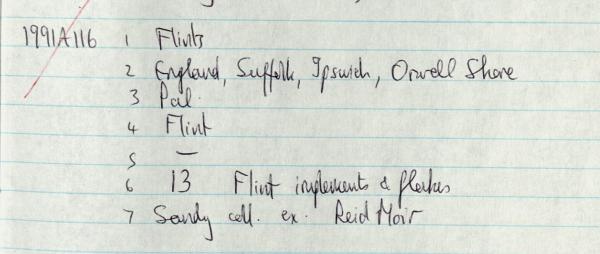 1991A116 1 Flints
2 England, Suffolk, Ipswich, Orwell Shore
3 Pal.
4 Flint
5 —
6 13 Flint implements & flakes
7 Sandy coll. ex. Reid Moir